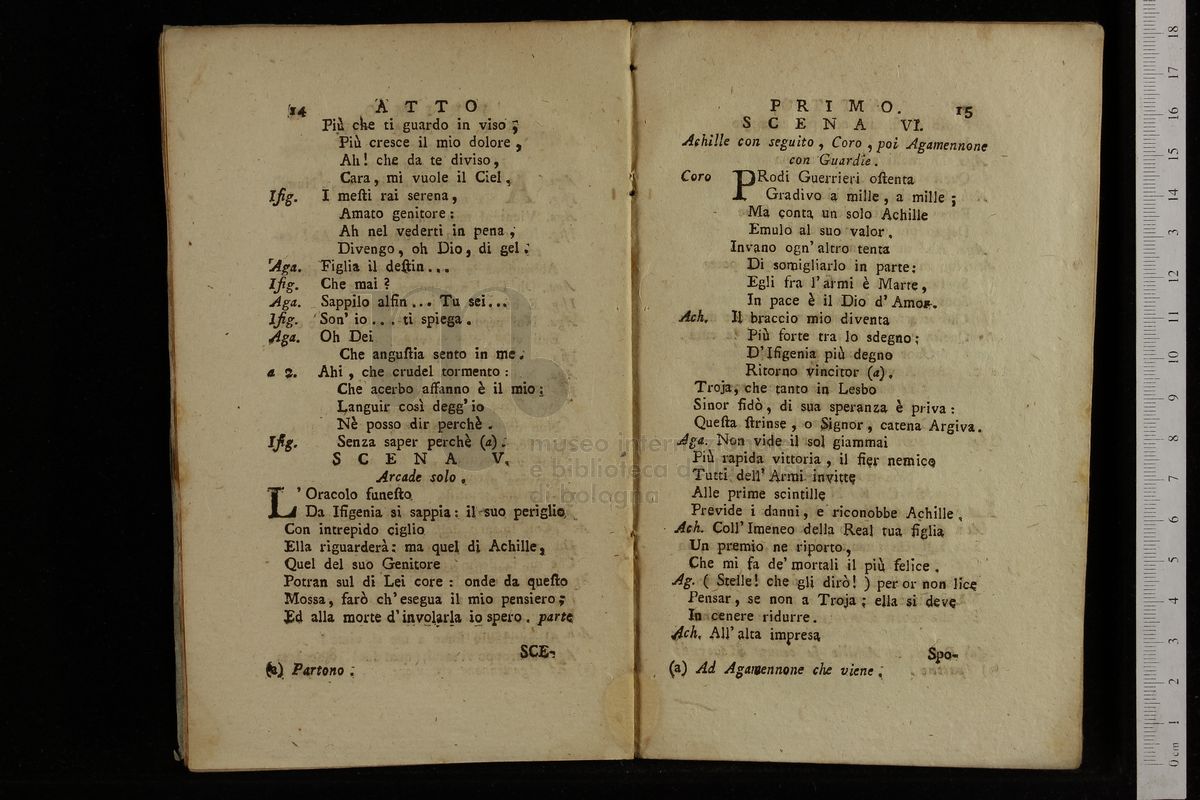 14 ATTO
Più che ti guardo in viso;
Più cresce il mio dolore,
Ah! che da te diviso,
Cara, mi vuole il Ciel.
Ifig. I mesti rai serena,
Amato genitore:
Ah nel vederti in pena,
Divengo, oh Dio, di gel.
Aga. Figlia il destin...
Ifig. Che mai?
Aga. Sappilo alfin... Tu sei...
Ifig. Son' io... ti spiega.
Aga. Oh Dei
Che angustia sento in me.
a 2. Ahi, che crudel tormento:
Che acerbo affanno è il mio:
Languir così degg' io
Nè posso dir perchè.
Ifig. Senza saper perchè (a).
SCENA V.
Arcade solo.
L'Oracolo funesto
Da Ifigenia si sappia: il suo periglio
Con intrepido ciglio
Ella riguarderà: ma quel di Achille,
Quel del suo Genitore
Potran sul di Lei core: onde da questo
Mossa, farò ch' esegua il mio pensiero;
Ed alla morte d'involarla io spero. parte
SCE-
(a) Partono.
PRIMO. 15
SCENA VI.
Achille con seguito, Coro, poi Agamennone
con Guardie.
Coro PRodi Guerrieri ostenta
Gradivo a mille, a mille;
Ma conta un solo Achille
Emulo al suo valor.
Invano ogn' altro tenta
Di somigliarlo in parte:
Egli fra l'armi è Marte,
In pace è il Dio d' Amor.
Ach. Il braccio mio diventa
Più forte tra lo sdegno;
D' Ifigenia più degno
Ritorno vincitor (a).
Troja, che tanto in Lesbo
Sinor fidò, di sua speranza è priva:
Questa strinse, o Signor, catena Argiva.
Aga. Non vide il sol giammai
Più rapida vittoria, il fier nemico
Tutti dell' Armi invitte
Alle prime scintille
Previde i danni, e riconobbe Achille.
Ach. Coll' Imeneo della Real tua figlia
Un premio ne riporto,
Che mi fa de' mortali il più felice.
Ag. (Stelle! che gli dirò!) per or non lice
Pensar, se non a Troja; ella si deve
In cenere ridurre.
Ach. All' alta impresa
Spo-
(a) Ad Agamennone che viene.